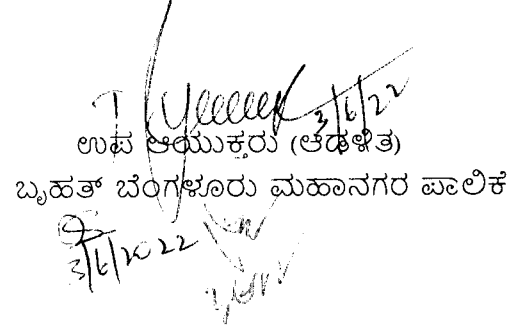 3/6/22
ಉಪ ಆಯುಕ್ತರು (ಆಡಳಿತ)
ಬೃಹತ್ ಬೆಂಗಳೂರು ಮಹಾನಗರ ಪಾಲಿಕೆ
3/6/2022